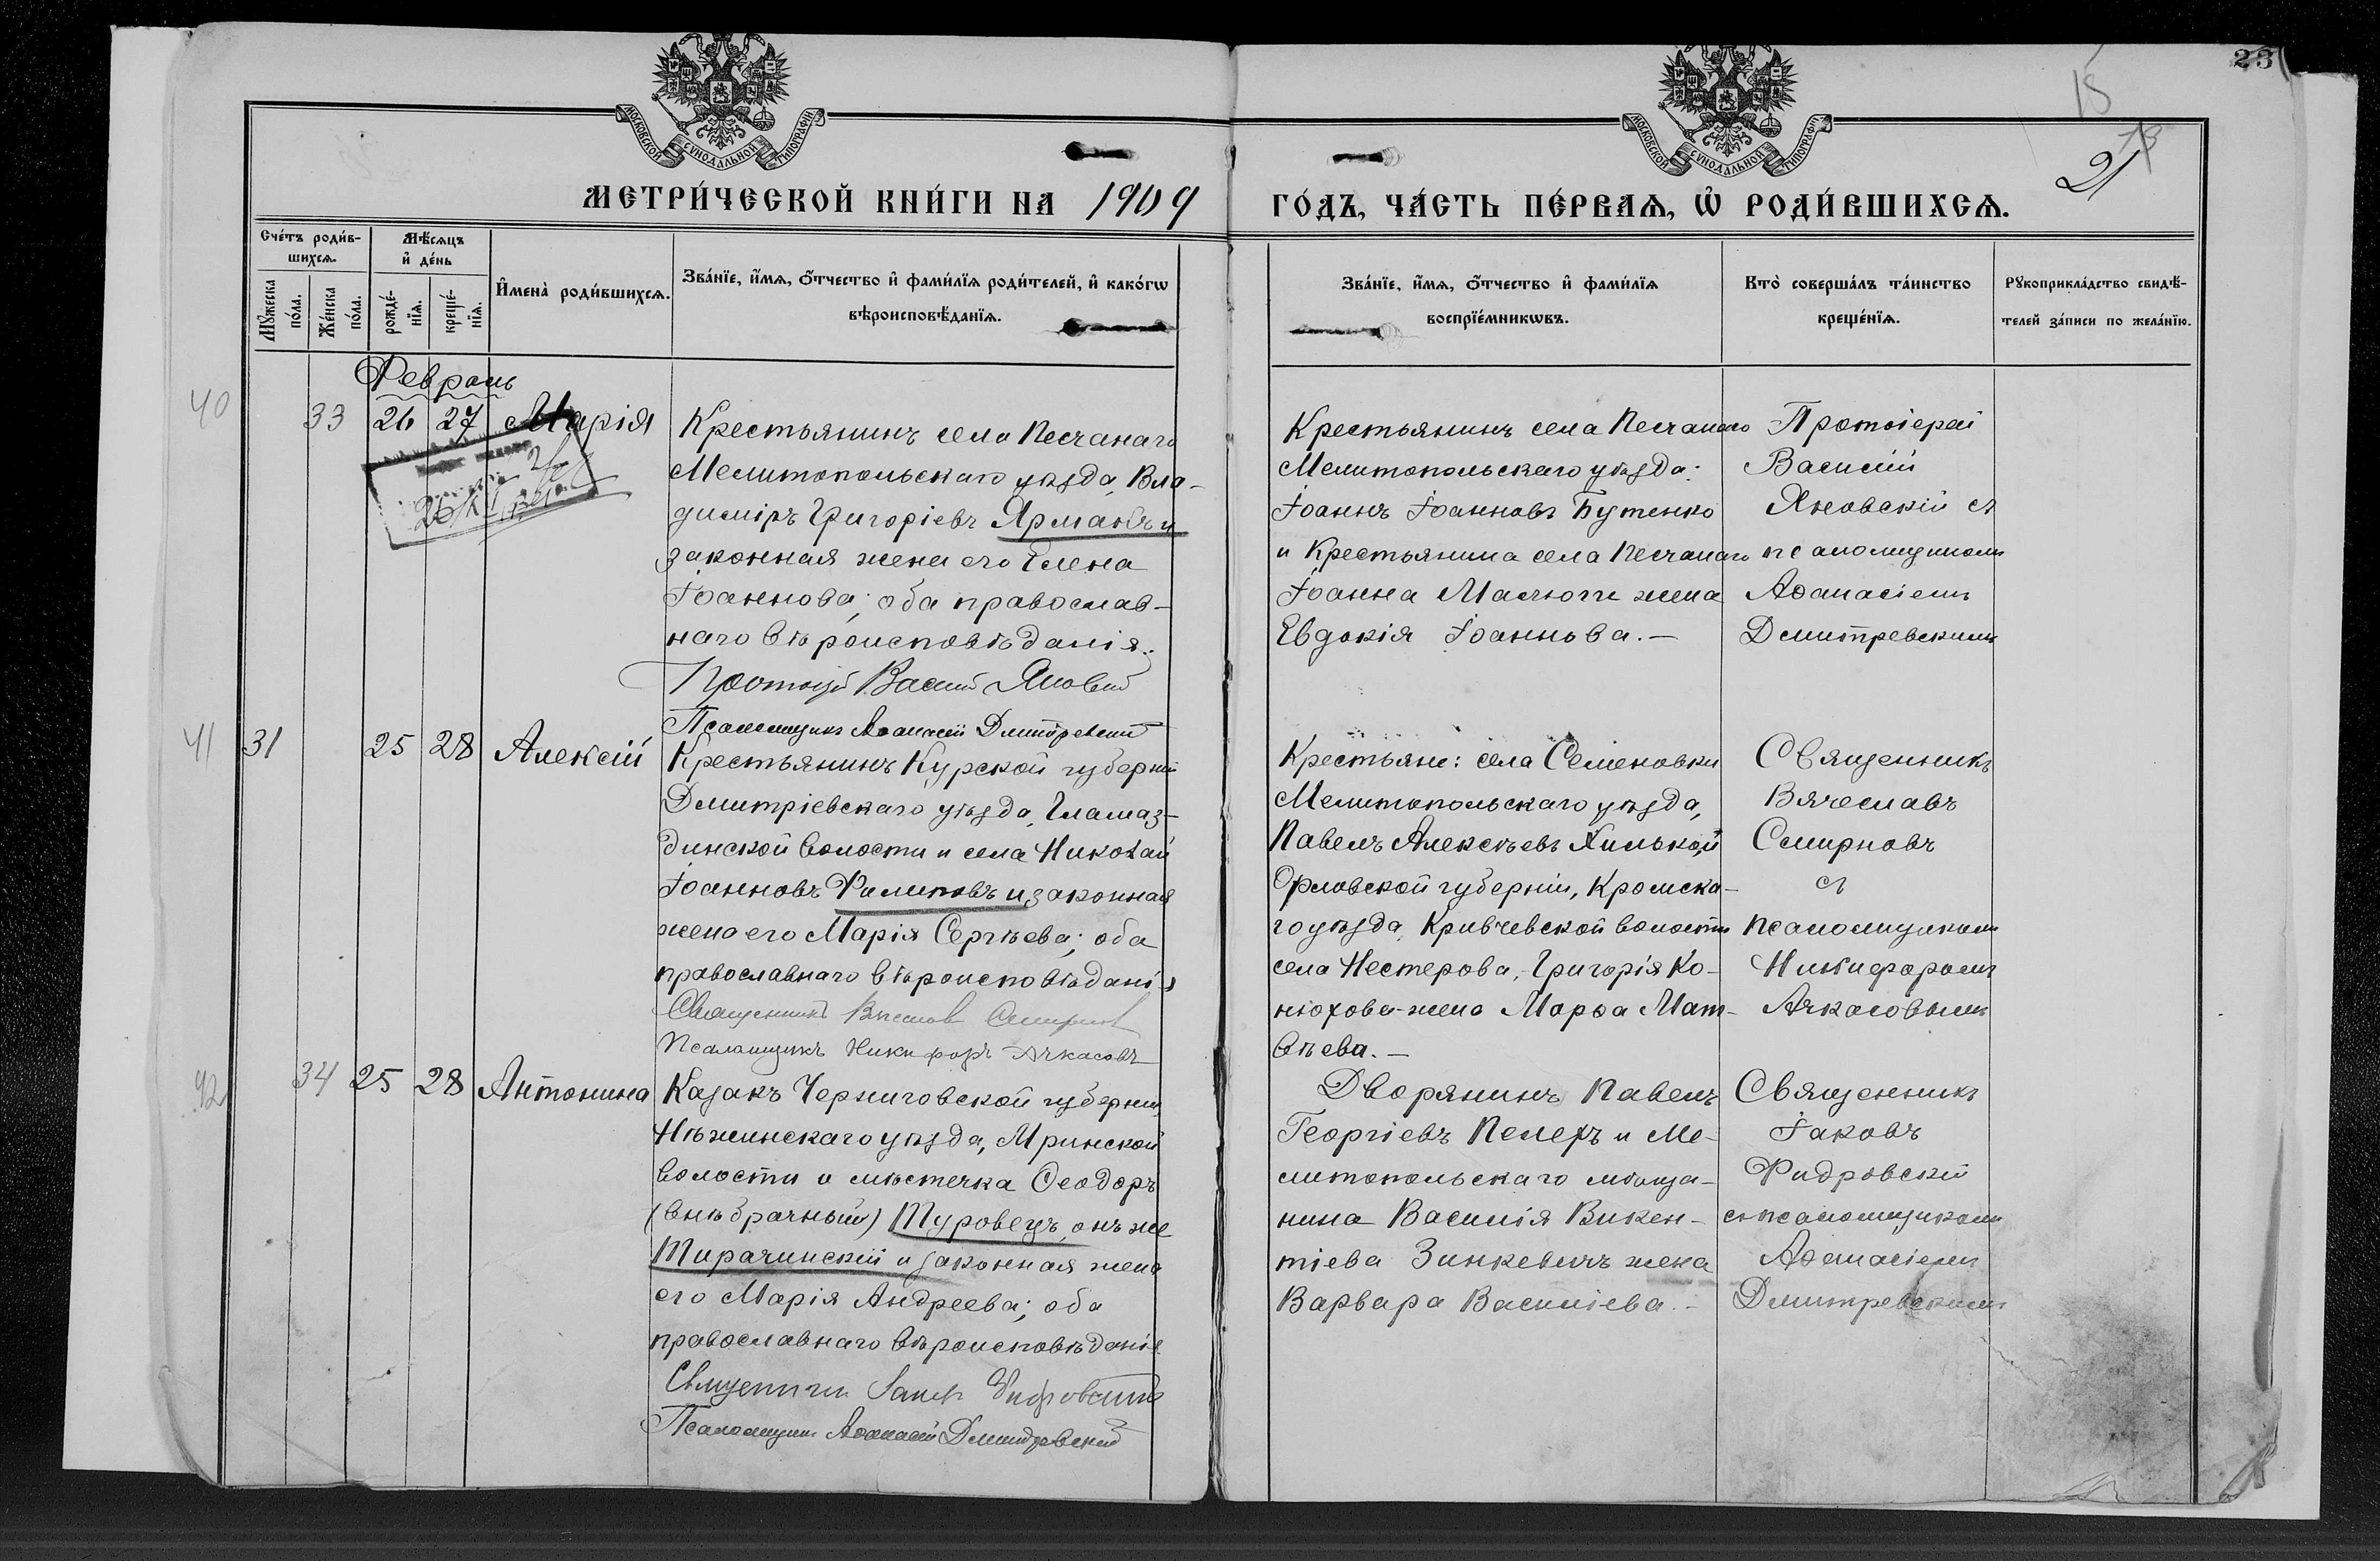 23
15
13
21
МОСКОВСКОЙ СѴНОДАЛЬНОЙ ТИПОГРАФІИ
МОСКОВСКОЙ СѴНОДАЛЬНОЙ ТИПОГРАФІИ
МЕТРИ́ЧЕСКОЙ КНИ́ГИ НА 1909
ГО́ДЪ, ЧА́СТЬ ПЕ́РВАѦ, Ѡ҆ РОДИ́ВШИХСѦ.
Сче́тъ роди́в-
шихсѧ.
Мꙋ́жеска по́ла.
Же́нска по́ла.
Мѣ́сѧцъ
и҆ де́нь
рожде́-
нїѧ.
креще́-
нїѧ.
И҆мена̀ роди́вшихсѧ.
Зва́нїе, и҆́мѧ, ѻ҆́тчество и҆ фами́лїѧ роди́телей, и҆ како́гѡ
вѣроисповѣ́данїѧ.
Зва́нїе, и҆́мѧ, ѻ҆́тчество и҆ фами́лїѧ
воспрїе́мникѡвъ.
Кто̀ соверша́лъ та́инство
креще́нїѧ.
Рꙋкоприкла́дство свидѣ́-
телей за́писи по жела́нїю.
Февраль
40
33 26 27 Марія
Крестьянинъ села Песчанаго
Мелитопольскаго уѣзда, Вла-
диміръ Григорьевъ Ярмакъ и
законная жена его Елена
Іоаннова; оба православ-
наго вѣроисповѣданія.
Протоіерей Василій Яновскій
Псаломщикъ Аѳанасій Дмитревскій
Крестьянинъ села Песчанаго
Мелитопольскаго уѣзда:
Іоаннъ Іоанновъ Бутенко
и Крестьянина села Песчанаго
Іоанна Малюги жена
Евдокія Іоаннова.—
Протоіерей
Василій
Яновскій съ
псаломщикомъ
Аѳанасіемъ
Дмитревскимъ
41
31 25 28 Алексій
Крестьянинъ Курской губерніи
Дмитріевскаго уѣзда, Гламаз-
динской волости и села Николай
Іоанновъ Филиповъ и законная
жена его Марія Сергѣева; оба
православнаго вѣроисповѣданія
Священникъ Вячеславъ Смирновъ
Псаломщикъ Никифоръ Ачкасовъ
Крестьяне: села Семеновки
Мелитопольскаго уѣзда,
Павелъ Алексѣевъ Хилько, и
Орловской губерніи, Кромска-
го уѣзда, Кривчевской волости
села Нестерова, Григорія Ко-
нюхова-жена Марѳа Мат-
вѣева.—
Священникъ
Вячеславъ
Смирновъ
съ
псаломщикомъ
Никифоромъ
Ачкасовымъ
42
34 25 28 Антонина
Казакъ Черниговской губерніи
Нѣжинскаго уѣзда, Мринской
волости и мѣстечка Ѳеодоръ
(внѣбрачный) Туровецъ, онъ же
Тирачинскій и законная жена
его Марія Андреева; оба
православнаго вѣроисповѣданія
Священникъ Іаковъ
Псаломщикъ Аѳанасій Дмитревскій
Дворянинъ Павелъ
Георгіевъ Пелехъ и Ме-
литопольскаго мѣща-
нина Василія Викен-
тіева Зинкевичъ жена
Варвара Василіева.—
Священникъ
Іаковъ
Фидровскій
съ псаломщикомъ
Аѳанасіемъ
Дмитревскимъ